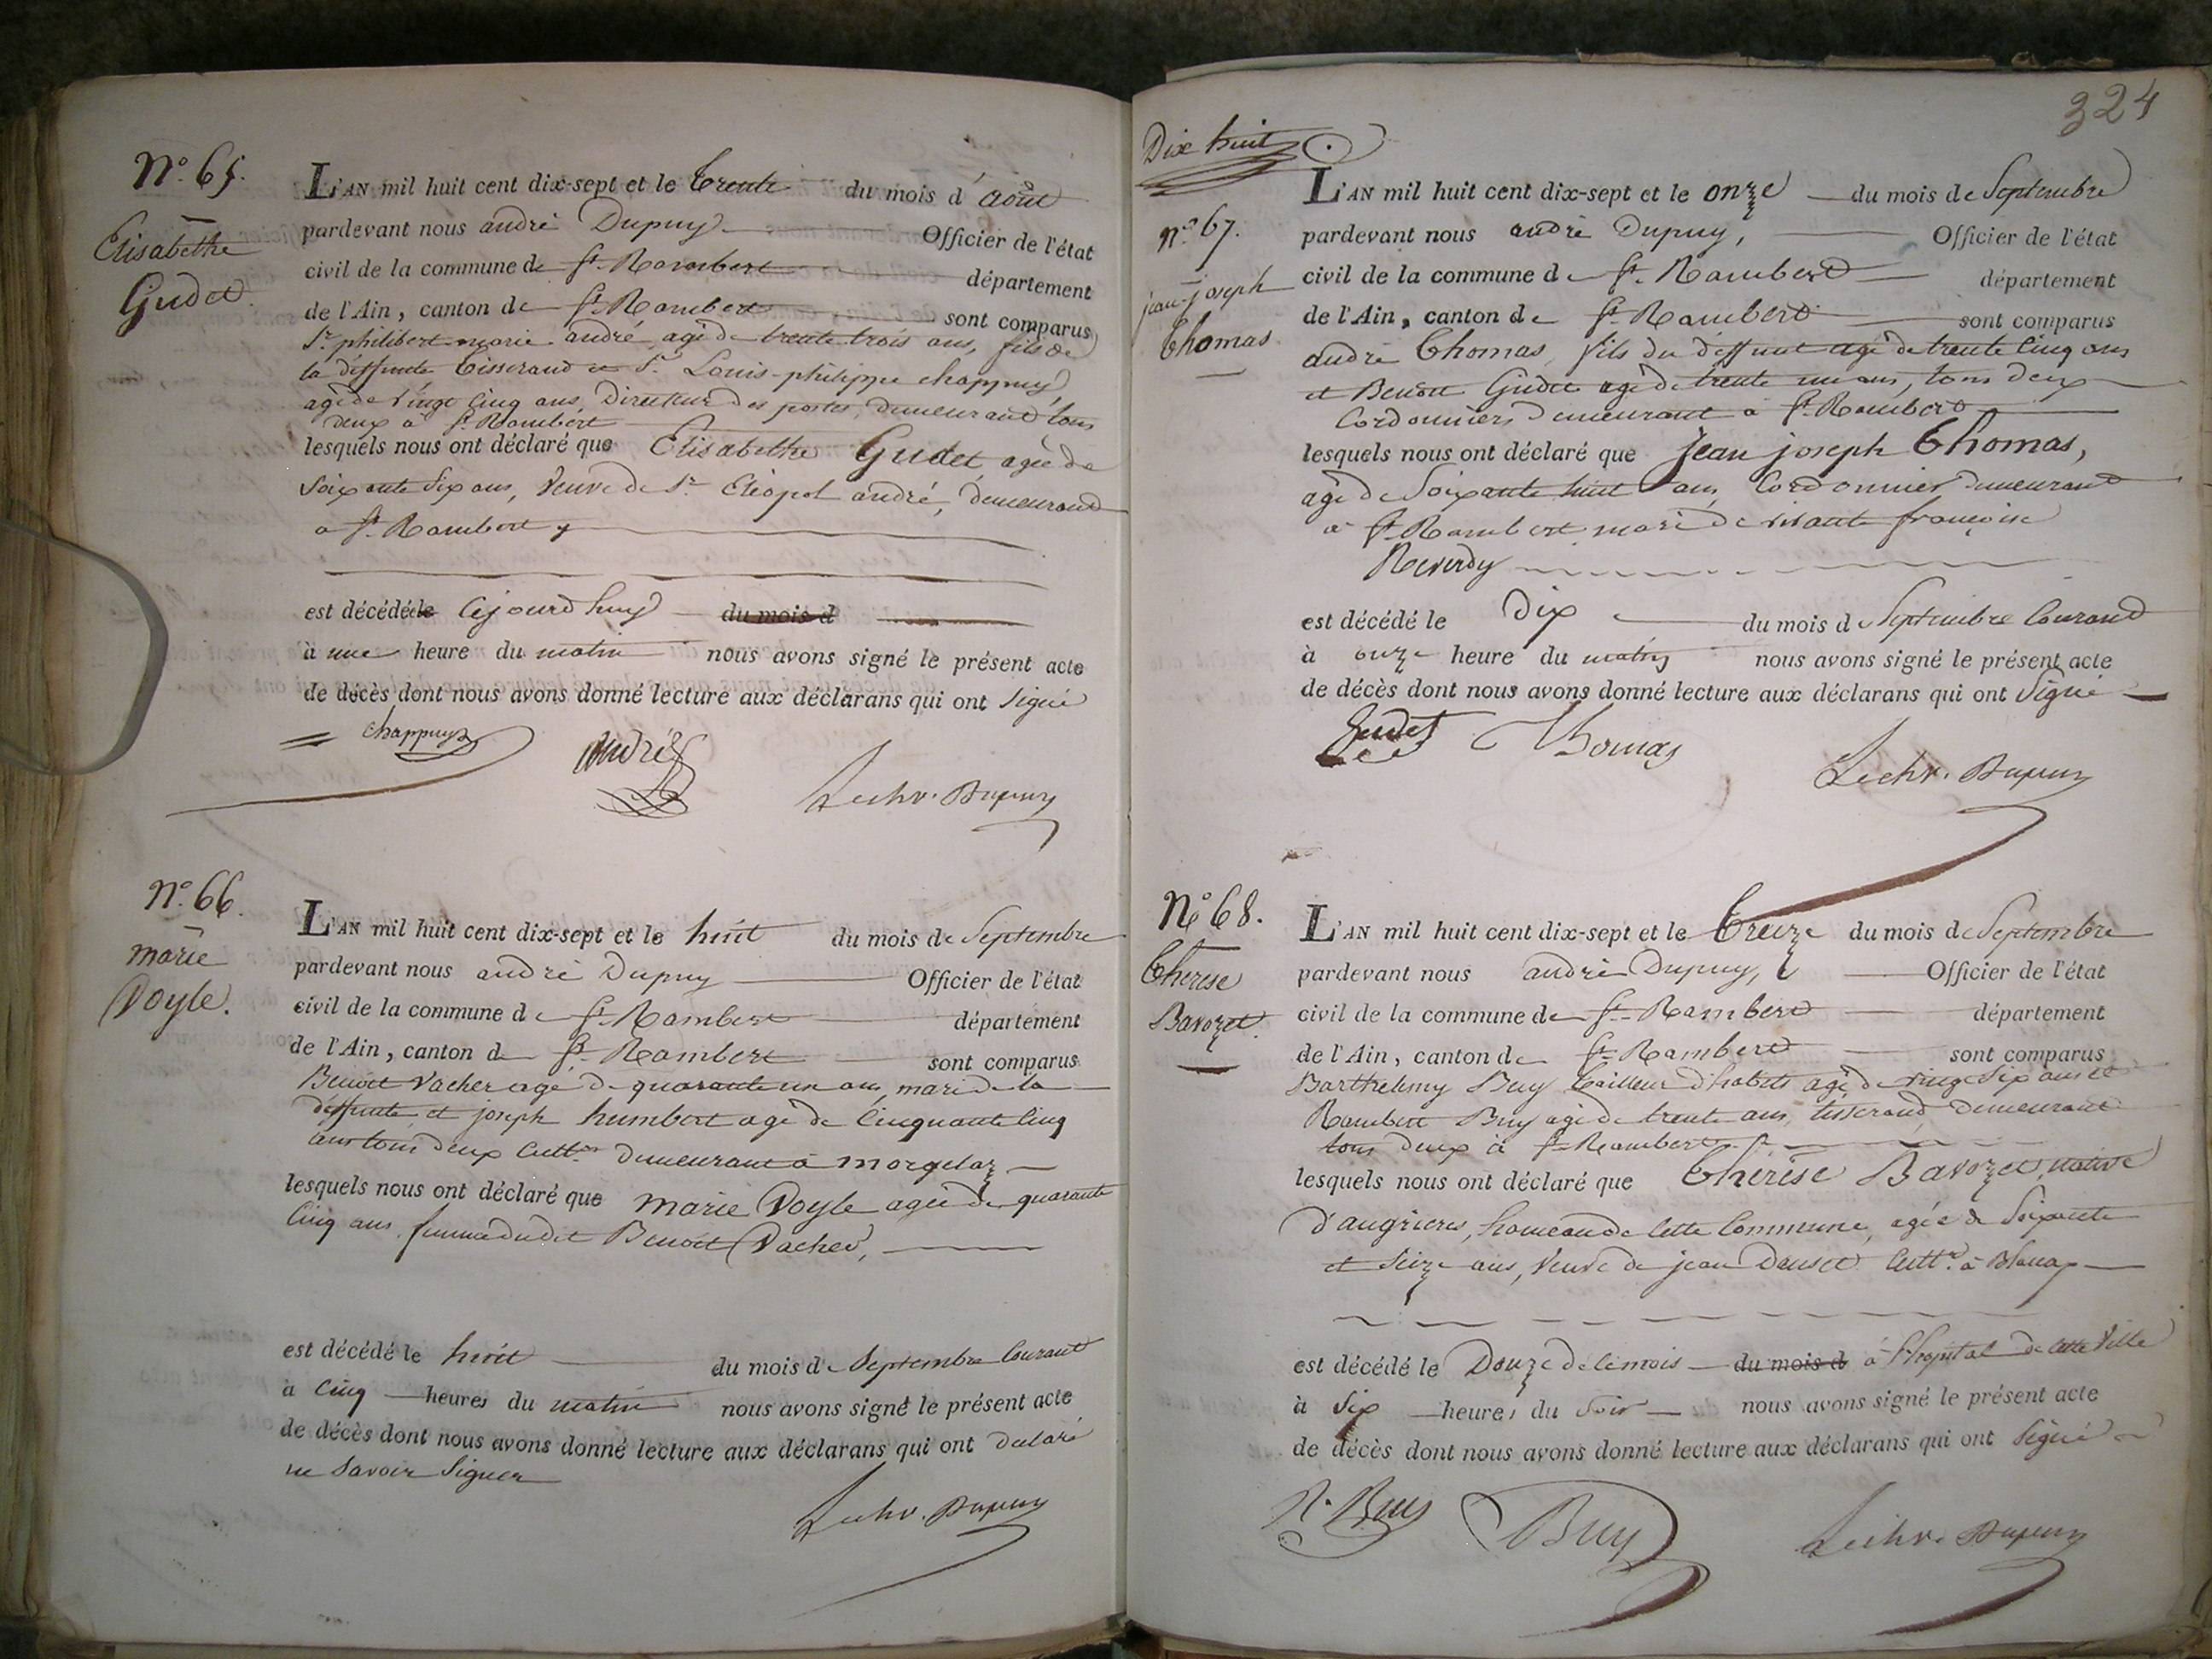 N.o 65.
Elisabethe
Gudet.
L'AN mil huit cent dix-sept et le trente du mois d'août
pardevant nous andré Dupuy Officier de l'état
civil de la commune de St. Rambert département
de l'Ain, canton de St. Rambert sont comparus
Sr. philibert marie andré, agé de trente trois ans, fils de
la deffunte tisserand et Sr. Louis-philippe chappuy,
agé de vingt cinq ans, Directeur des postes, demeurant tous
deux à St. Rambert
lesquels nous ont déclaré que Elisabethe Gudet, agée de
Soixante six ans, veuve de Sr. andré, demeurant
a St. Rambert
est décédée le Cejourd'huy du mois d
à une heure du matin nous avons signé le présent acte
de décès dont nous avons donné lecture aux déclarans qui ont signé
chappuy
andré
Dupuy
N.o 66.
marie
Voyle.
L'AN mil huit cent dix-sept et le huit du mois de Septembre
pardevant nous andré Dupuy Officier de l'état
civil de la commune de St. Rambert département
de l'Ain, canton de St. Rambert sont comparus
Benoit Vacher agé de quarante un ans, mari de la
deffunte, et joseph humbert agé de Cinquante Cinq
ans tous deux Cultrs. demeurant à morgelaz
lesquels nous ont déclaré que marie Voyle agée de quarante
Cinq ans, femme dudit Benoit Vacher,
est décédé le huit du mois de Septembre Courant
à Cinq heures du matin nous avons signé le présent acte
de décès dont nous avons donné lecture aux déclarans qui ont déclaré
ne savoir signer
Dupuy
324
Dix huit
n.o 67.
jean-joseph
Thomas.
L'AN mil huit cent dix-sept et le onze du mois de Septembre
pardevant nous andré Dupuy, Officier de l'état
civil de la commune de St. Rambert département
de l'Ain, canton de St. Rambert sont comparus
andré Thomas, fils du deffunt agé de trente Cinq ans
et Benoit Gudet agé de trente un ans, tous deux
Cordonniers demeurant à St. Rambert
lesquels nous ont déclaré que Jean joseph Thomas,
agé de Soixante huit ans, Cordonnier demeurant
a St. Rambert mari de vivante françoise
Reverdy
est décédé le Dix du mois de Septembre Courant
à onze heure du matin nous avons signé le présent acte
de décès dont nous avons donné lecture aux déclarans qui ont Signé
Gudet Thomas
Dupuy
N.o 68.
Therese
Bavozet.
L'AN mil huit cent dix-sept et le Treize du mois de Septembre
pardevant nous andré Dupuy, Officier de l'état
civil de la commune de St. Rambert département
de l'Ain, canton de St. Rambert sont comparus
Barthelemy Buy tailleur d'habits agé de vingt six ans et
Rambert Buy agé de trente ans, tisserand, demeurant
tous deux à St. Rambert
lesquels nous ont déclaré que Thérèse Bavozet, native
d'augrieres, hameau de cette Commune, agée de Soixante
et Seize ans, veuve de jean Cultr. à
est décédé le Douze de ce mois du mois d à l'hopital de cette ville
à Six heures du Soir nous avons signé le présent acte
de décès dont nous avons donné lecture aux déclarans qui ont Signé
R. Buy
Buy
Dupuy